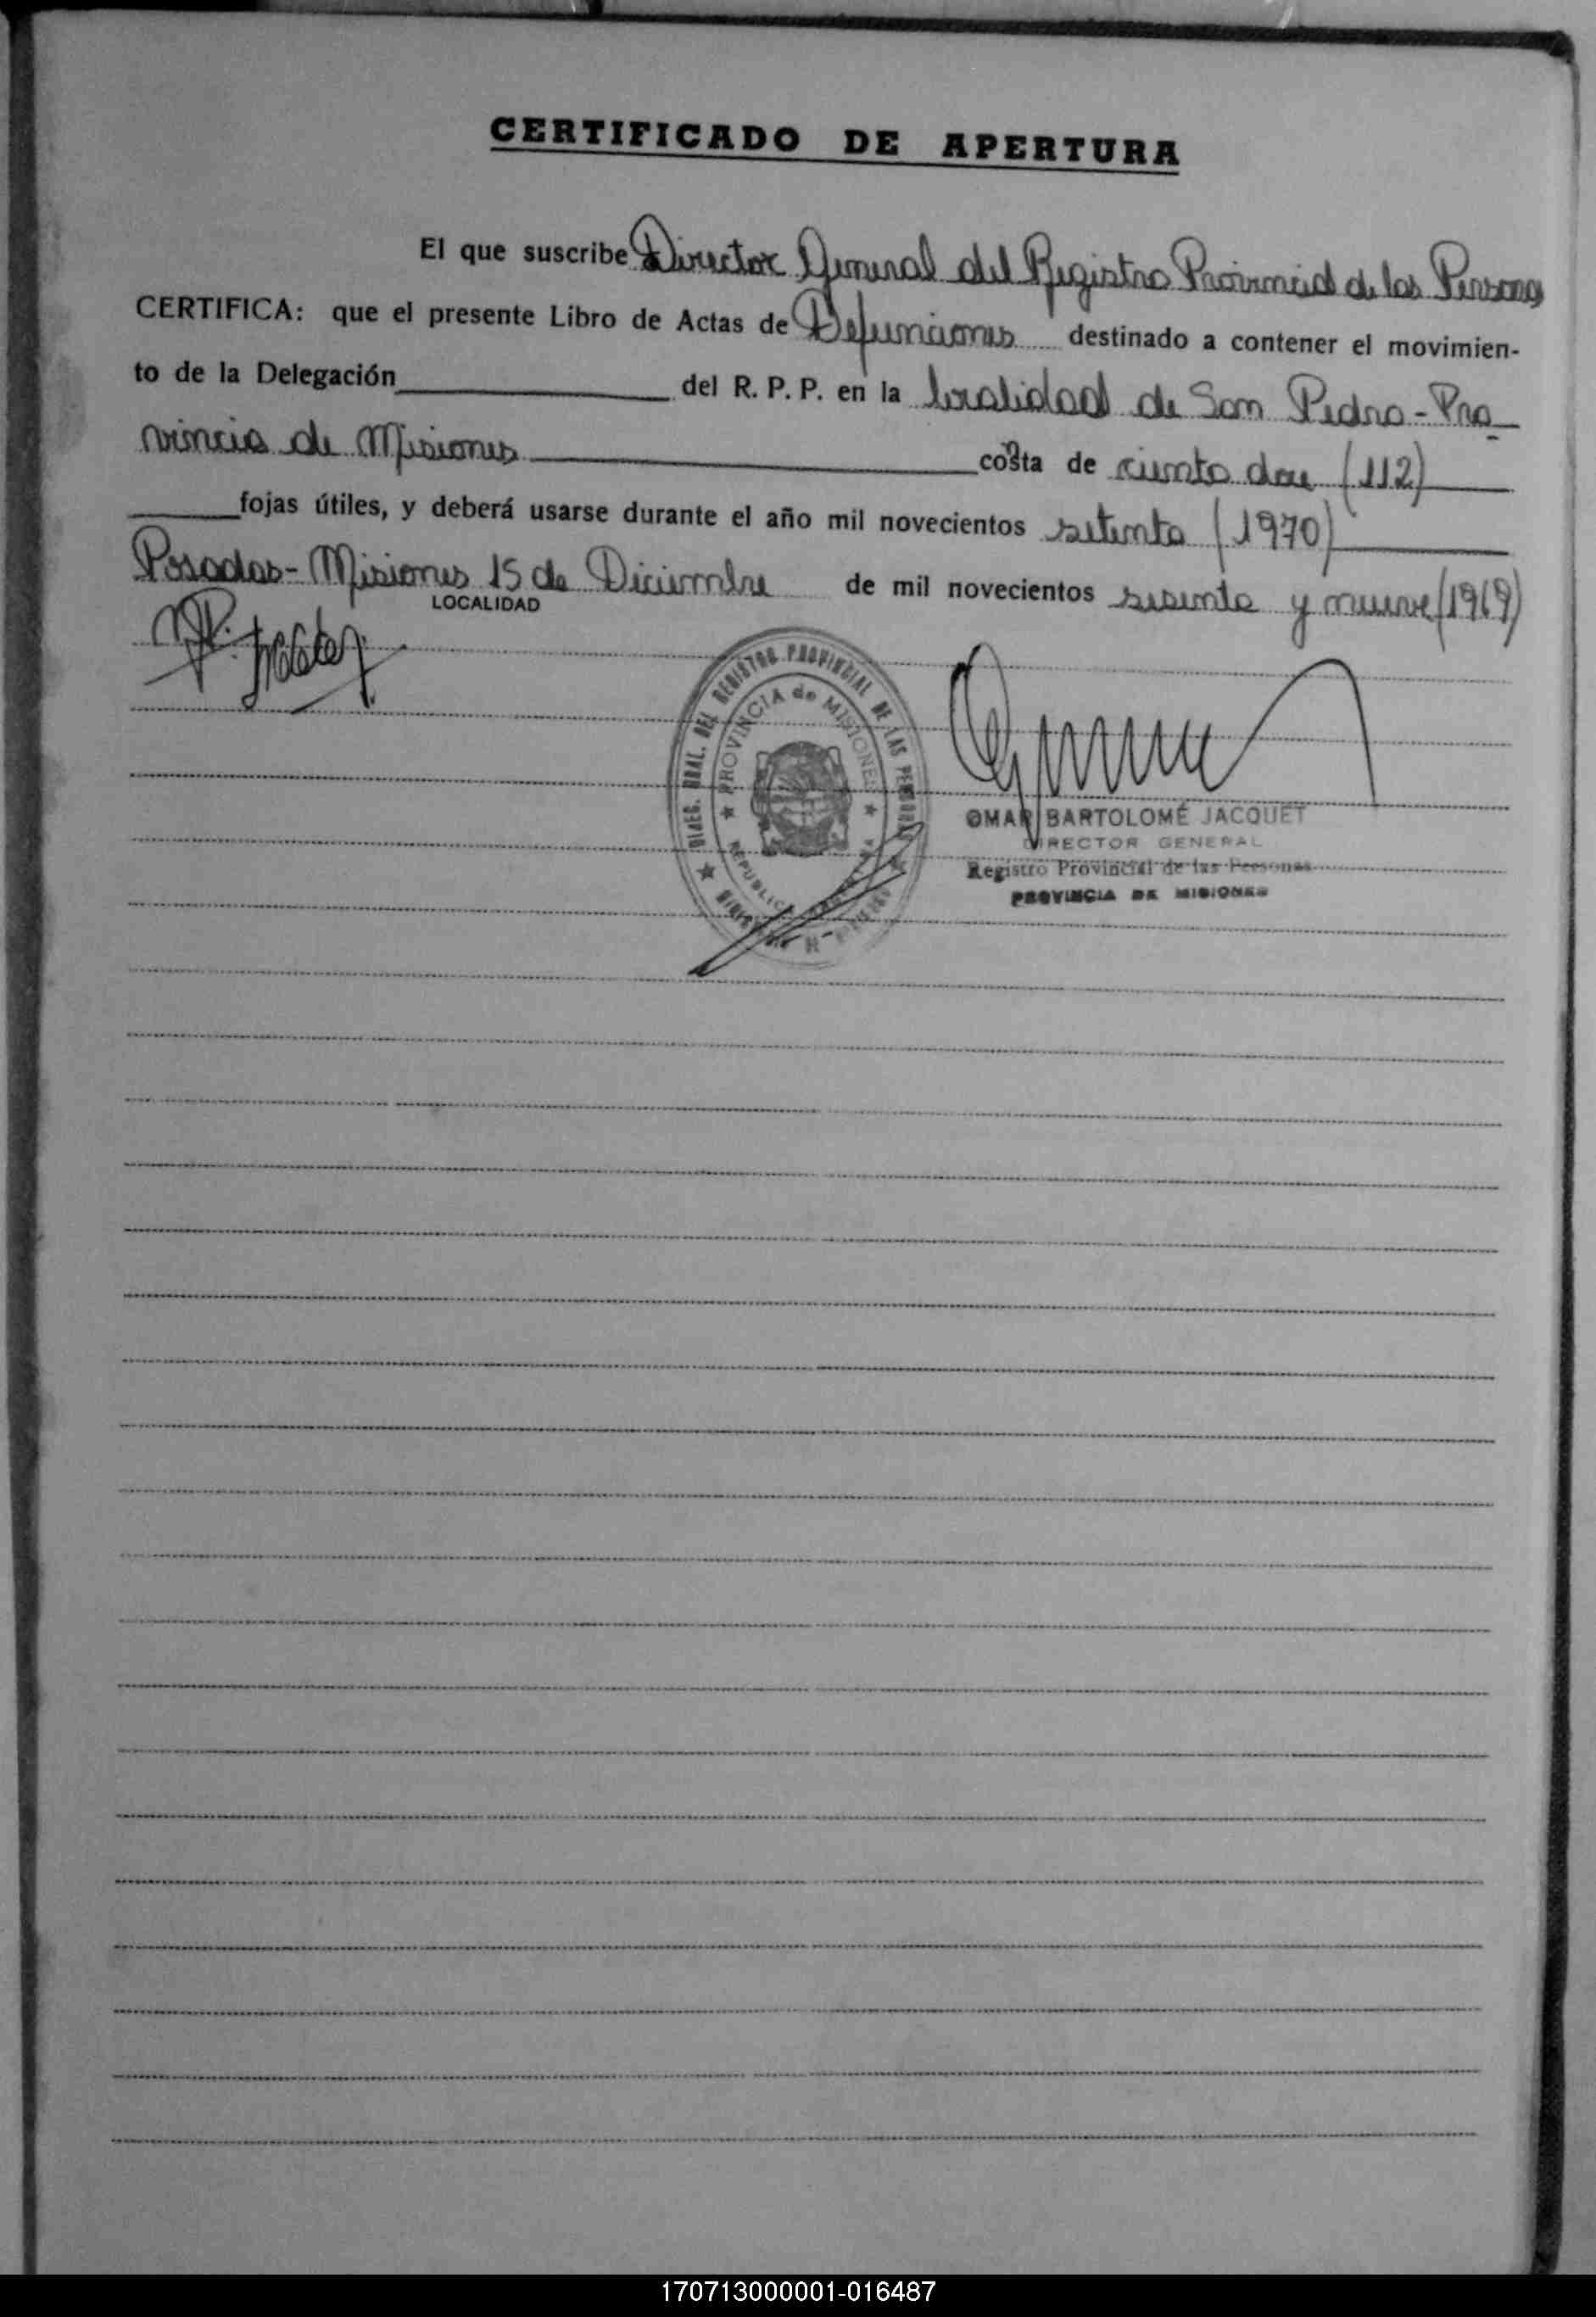 CERTIFICADO DE APERTURA
El que suscribe Director General del Registro Provincial de las Personas
CERTIFICA: que el presente Libro de Actas de Defunciones destinado a contener el movimien-
to de la Delegación del R. P. P. en la localidad de San Pedro - Pro
vincia de Misiones costa de ciento doce (112)
fojas útiles, y deberá usarse durante el año mil novecientos setenta (1970)
Posadas - Misiones 15 de Diciembre de mil novecientos sesenta y nueve (1969)
LOCALIDAD
DIREG. GRAL. DEL REGISTRO PROVINCIAL DE LAS PERSONAS
PROVINCIA de MISIONES
REPUBLICA
OMAR BARTOLOMÉ JACQUET
DIRECTOR GENERAL
Registro Provincial de las Personas
PROVINCIA DE MISIONES
170713000001-016487